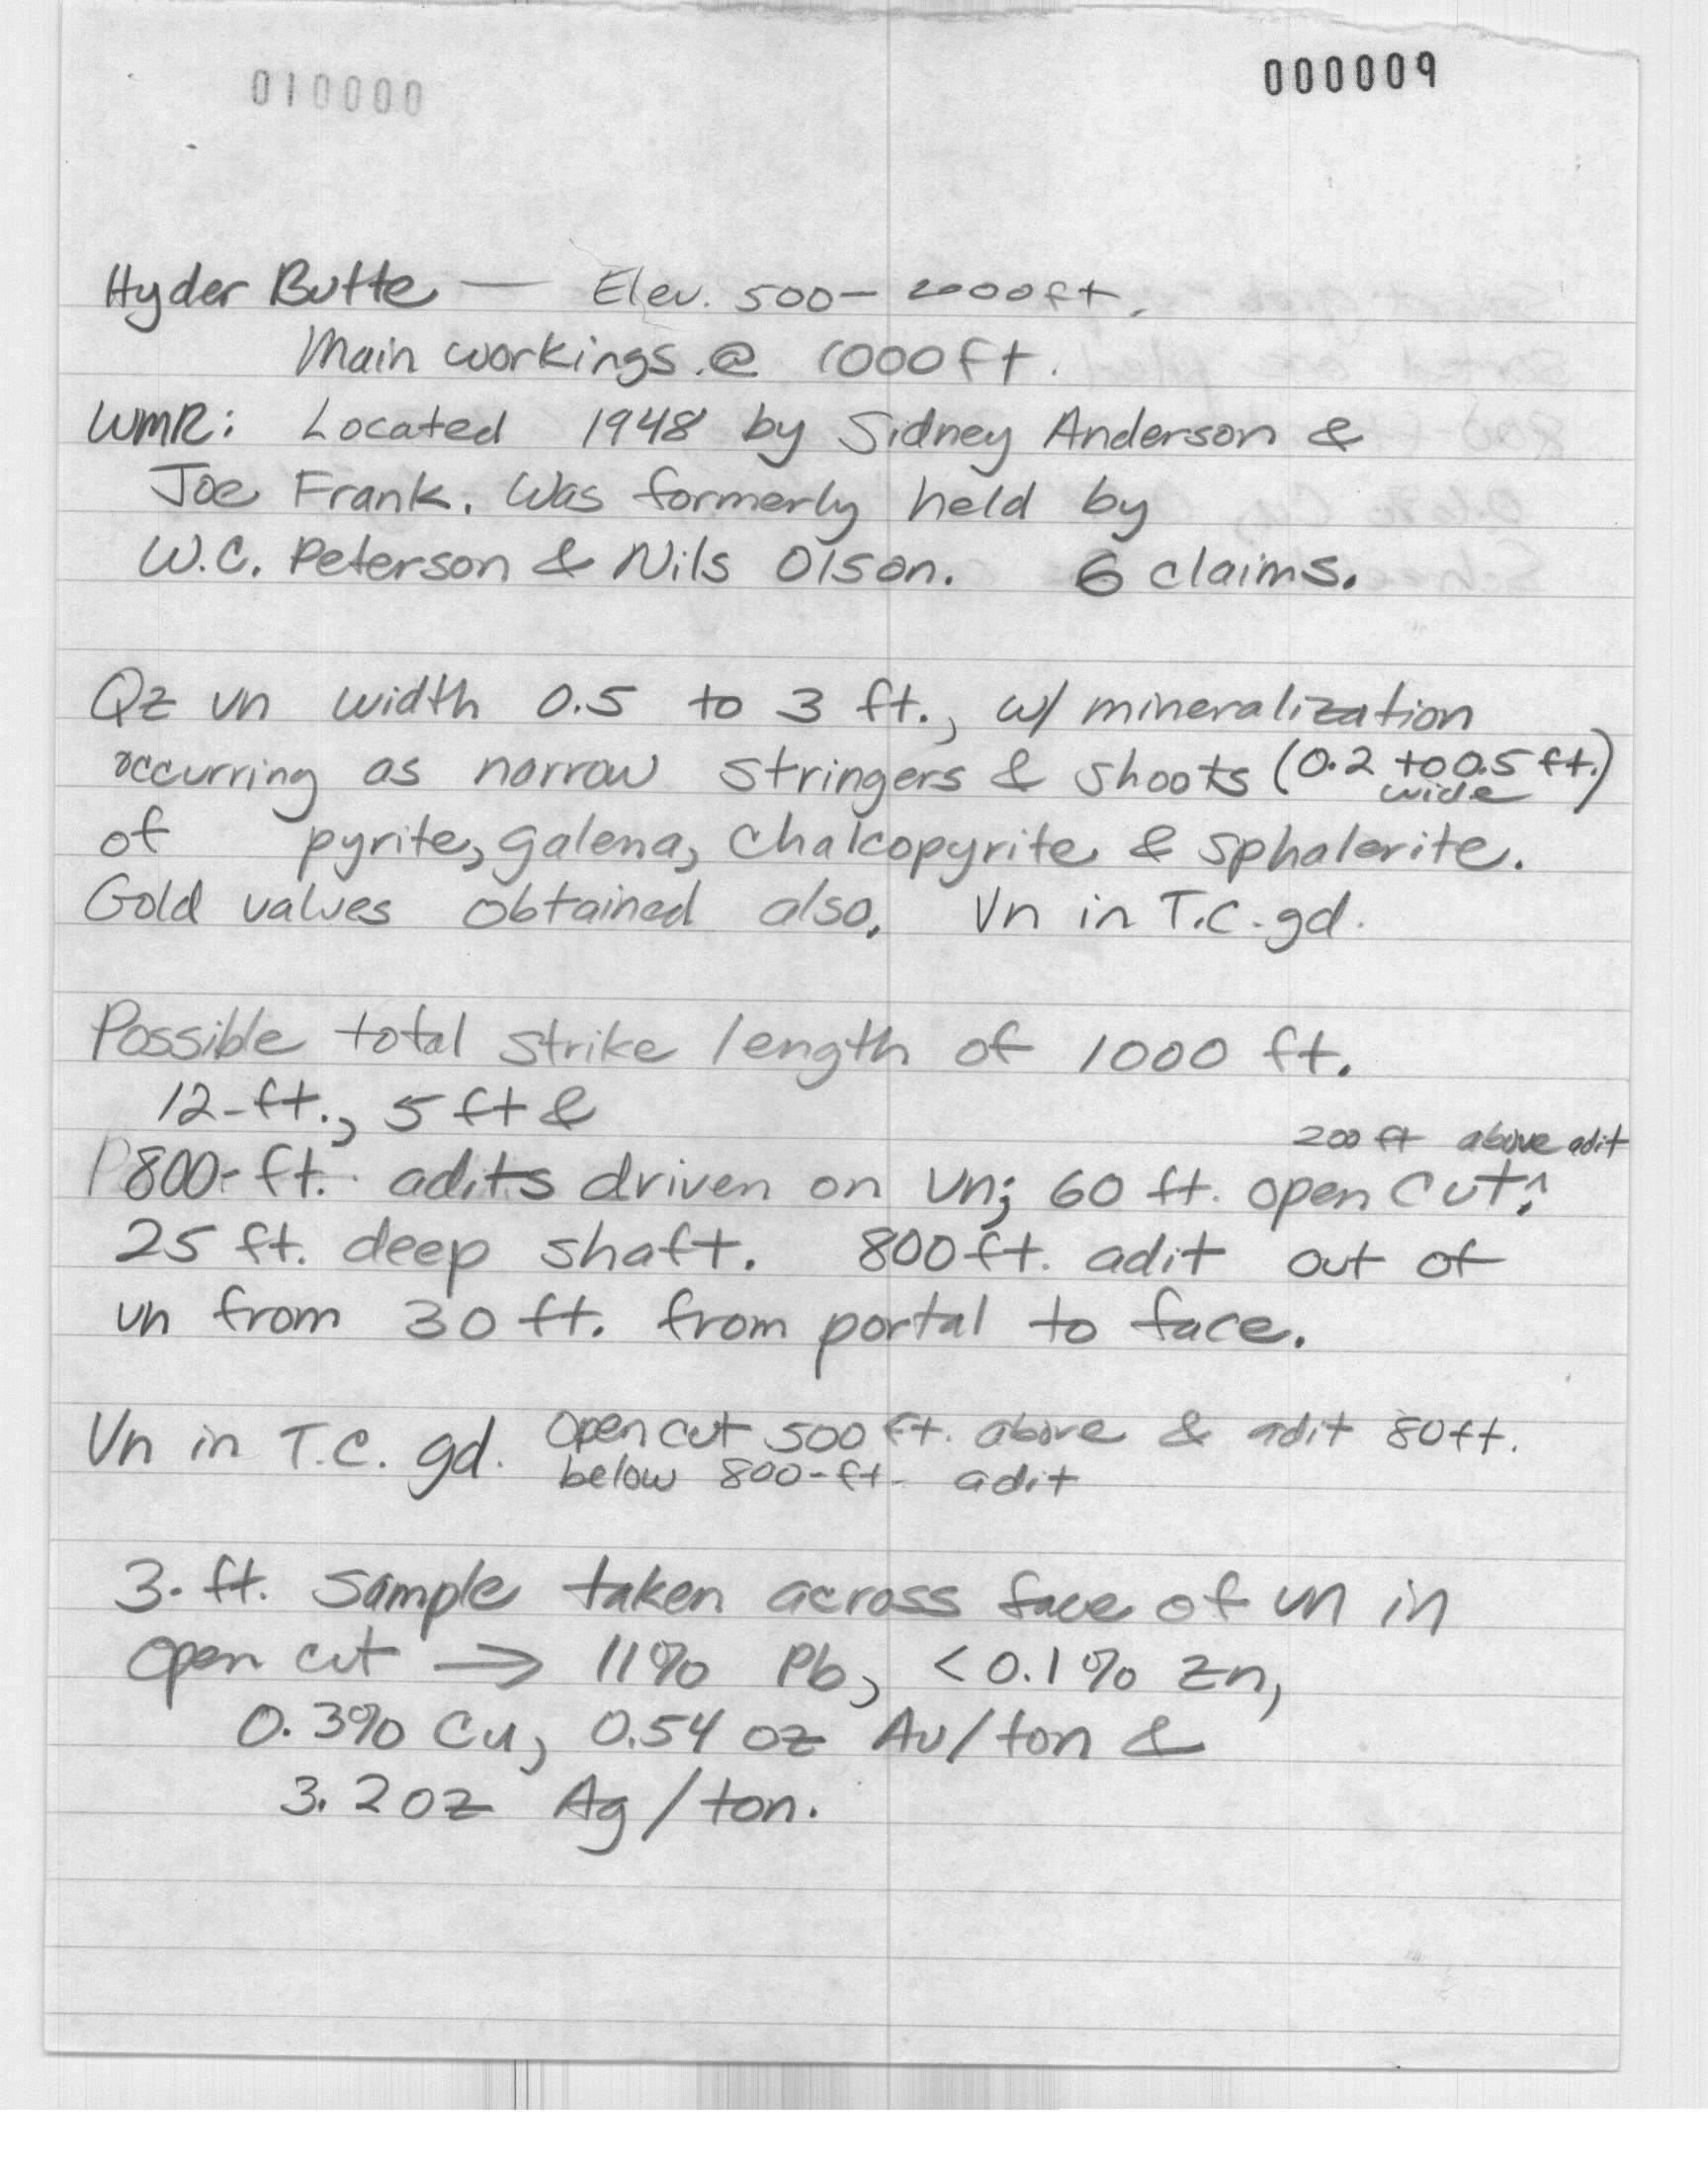 010000
000009
Hyder Butte — Elev. 500-2000ft.
Main workings @ 1000ft.
WMR: Located 1948 by Sidney Anderson &
Joe Frank. Was formerly held by
W.C. Peterson & Nils Olson. 6 claims.
Qz vn width 0.5 to 3 ft., w/ mineralization
occurring as narrow stringers & shoots (0.2 to 0.5 ft.)
wide
of pyrite, galena, chalcopyrite & sphalerite.
Gold values obtained also. Vn in T.C. gd.
Possible total strike length of 1000 ft.
12-ft., 5 ft &
200 ft above adit
800-ft. adits driven on vn; 60 ft. open cut;
25 ft. deep shaft. 800ft. adit out of
vn from 30 ft. from portal to face.
Vn in T.C. gd. Open cut 500 ft. above & adit 80ft.
below 800-ft. adit
3-ft. sample taken across face of vn in
open cut → 11% Pb, <0.1% Zn,
0.3% Cu, 0.54 oz Au/ton &
3.2 oz Ag/ton.